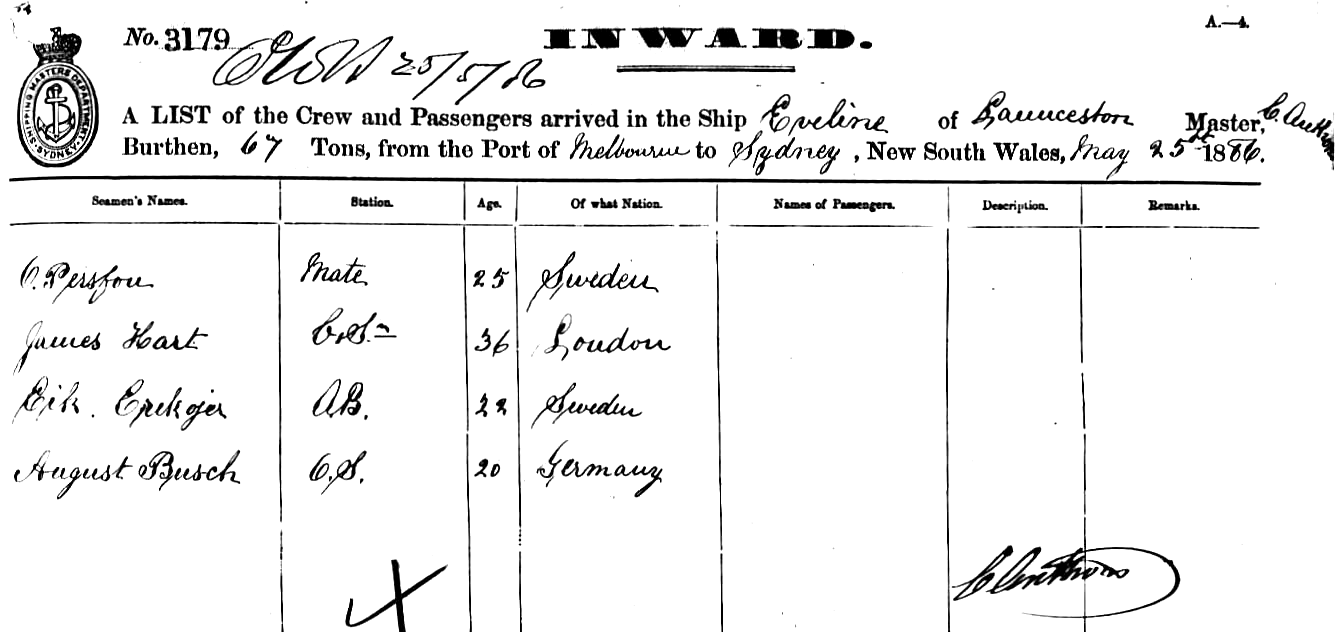 A.—4.
No. 3179 INWARD.
25/5/86
SHIPPING MASTERS DEPARTMENT SYDNEY
A LIST of the Crew and Passengers arrived in the Ship Eveline of Launceston Master,
Burthen, 67 Tons, from the Port of Melbourne to Sydney, New South Wales, May 25th 1886.
Seamen's Names. Station. Age. Of what Nation. Names of Passengers. Description. Remarks.
C. Persson Mate 25 Sweden
James Hart 36 London
Erik. AB. 22 Sweden
August Busch O.S. 20 Germany
4